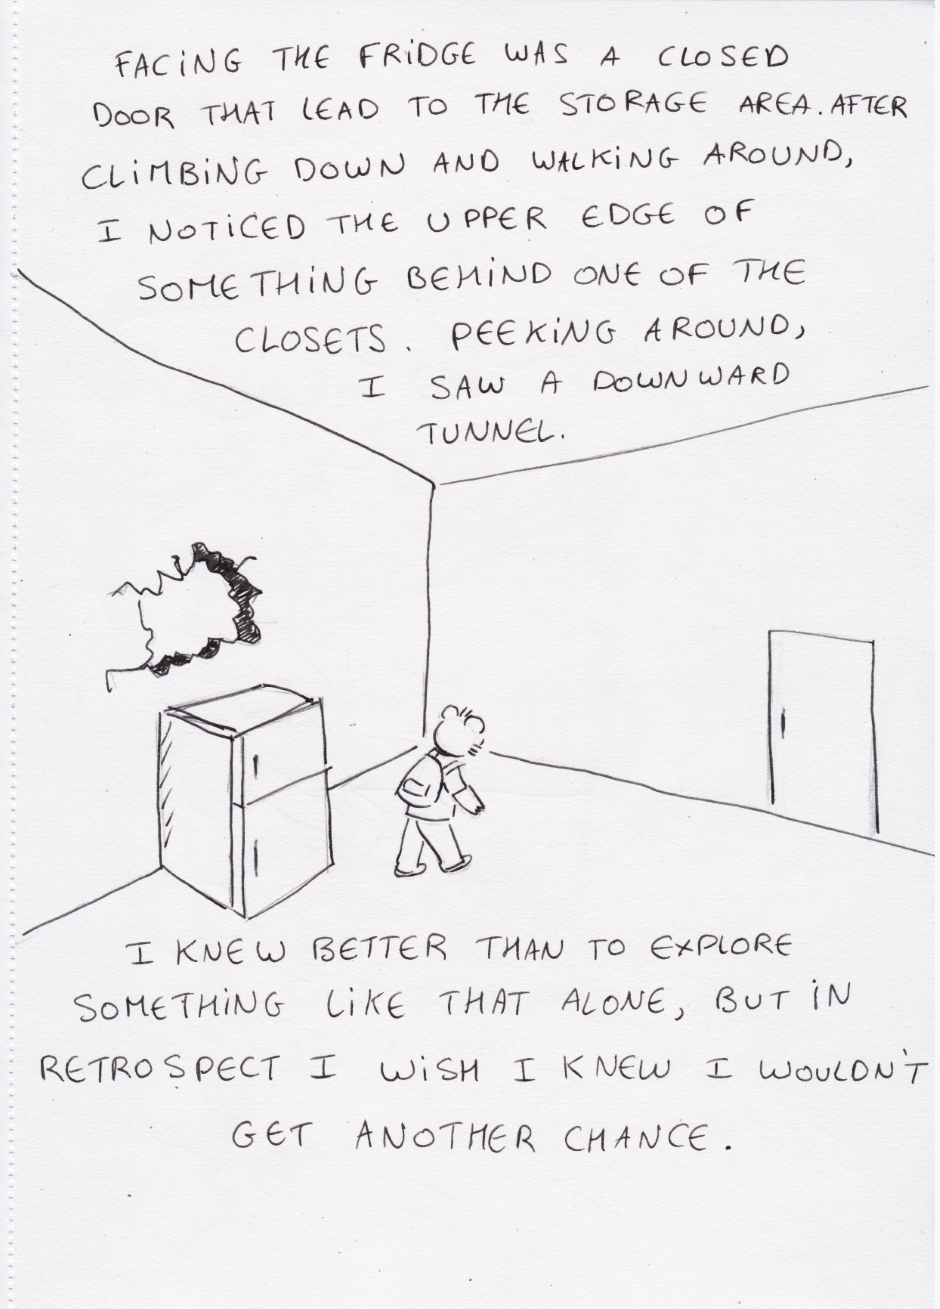 FACING THE FRIDGE WAS A CLOSED
DOOR THAT LEAD TO THE STORAGE AREA. AFTER
CLIMBING DOWN AND WALKING AROUND,
I NOTICED THE UPPER EDGE OF
SOMETHING BEHIND ONE OF THE
CLOSETS. PEEKING AROUND,
I SAW A DOWNWARD
TUNNEL.
I KNEW BETTER THAN TO EXPLORE
SOMETHING LIKE THAT ALONE, BUT IN
RETROSPECT I WISH I KNEW I WOULDN'T
GET ANOTHER CHANCE.